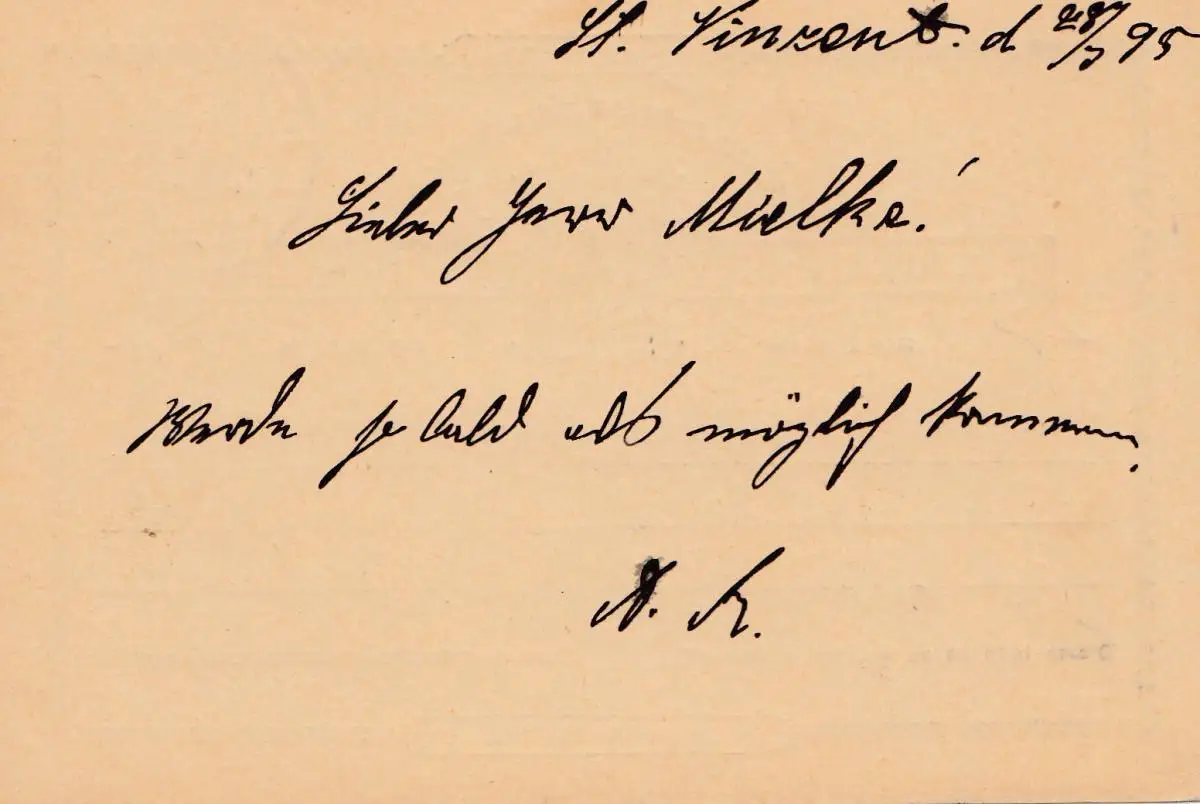 St. Vinzent. d 28/7 95
Lieber Herr Mielke!
Werde so bald als möglich kommen.
A. K.